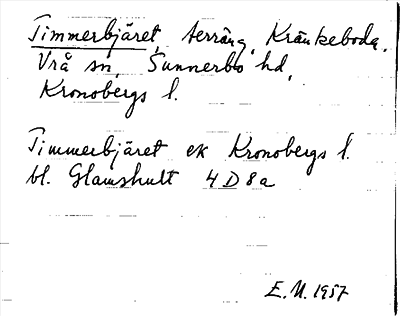 Timmerbjäret, terräng, Kränkeboda,
Vrå sn, Sunnerbo hd,
Kronobergs l.
Timmerbjäret ek Kronobergs l.
bl. Glamshult 4D8a
E.U. 1957